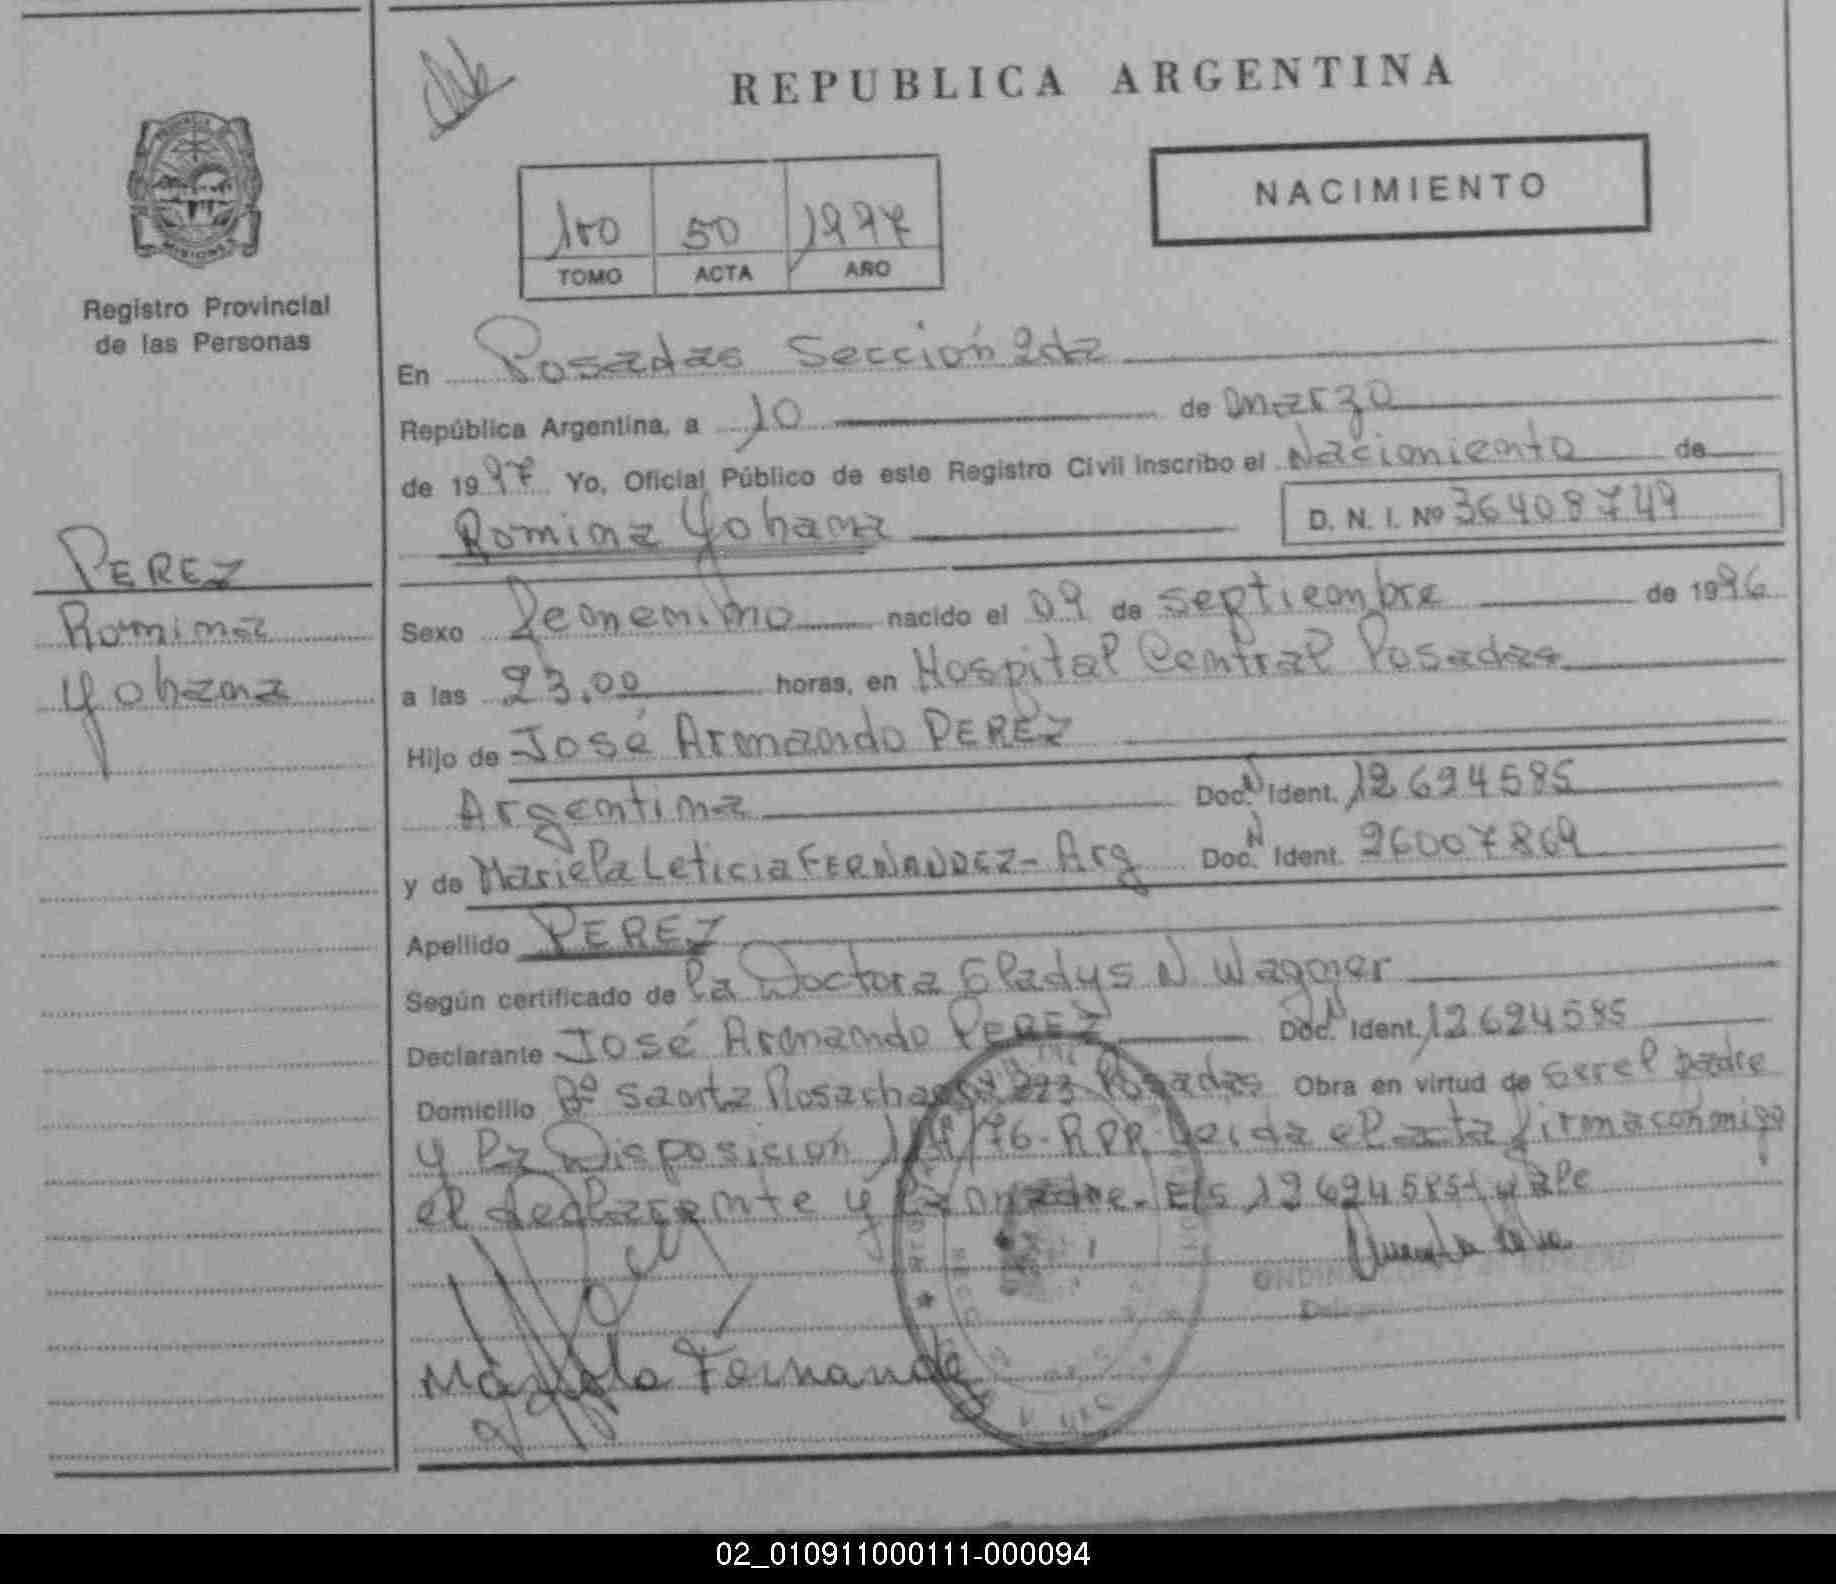 REPUBLICA ARGENTINA
NACIMIENTO
100 50 1997
TOMO ACTA AÑO
Registro Provincial
de las Personas
En Posadas Sección 2da
República Argentina, a 10 de marzo
de 1997 Yo, Oficial Público de este Registro Civil inscribo el Nacimiento de
Romina Yohana D. N. I. Nº 36408749
PEREZ
Romina
Yohana
Sexo Femenino nacido el 09 de septiembre de 1996
a las 23.00 horas, en Hospital Central Posadas
Hijo de José Armando PEREZ
Argentina Doc. N Ident. 12624585
y de Mariela Leticia FERNANDEZ - Arg Doc. N Ident. 26007869
Apellido PEREZ
Según certificado de la Doctora Gladys N. Wagner
Declarante José Armando PEREZ Doc. N Ident. 12624585
Domicilio Bº Santa Rosa chacra 223 Posadas Obra en virtud de ser el padre
y la Disposición /76-RPP- Leida el acta firma conmigo
el declarante y la madre. E/s 12624585 y vale
Mariela Fernandez
02_010911000111-000094